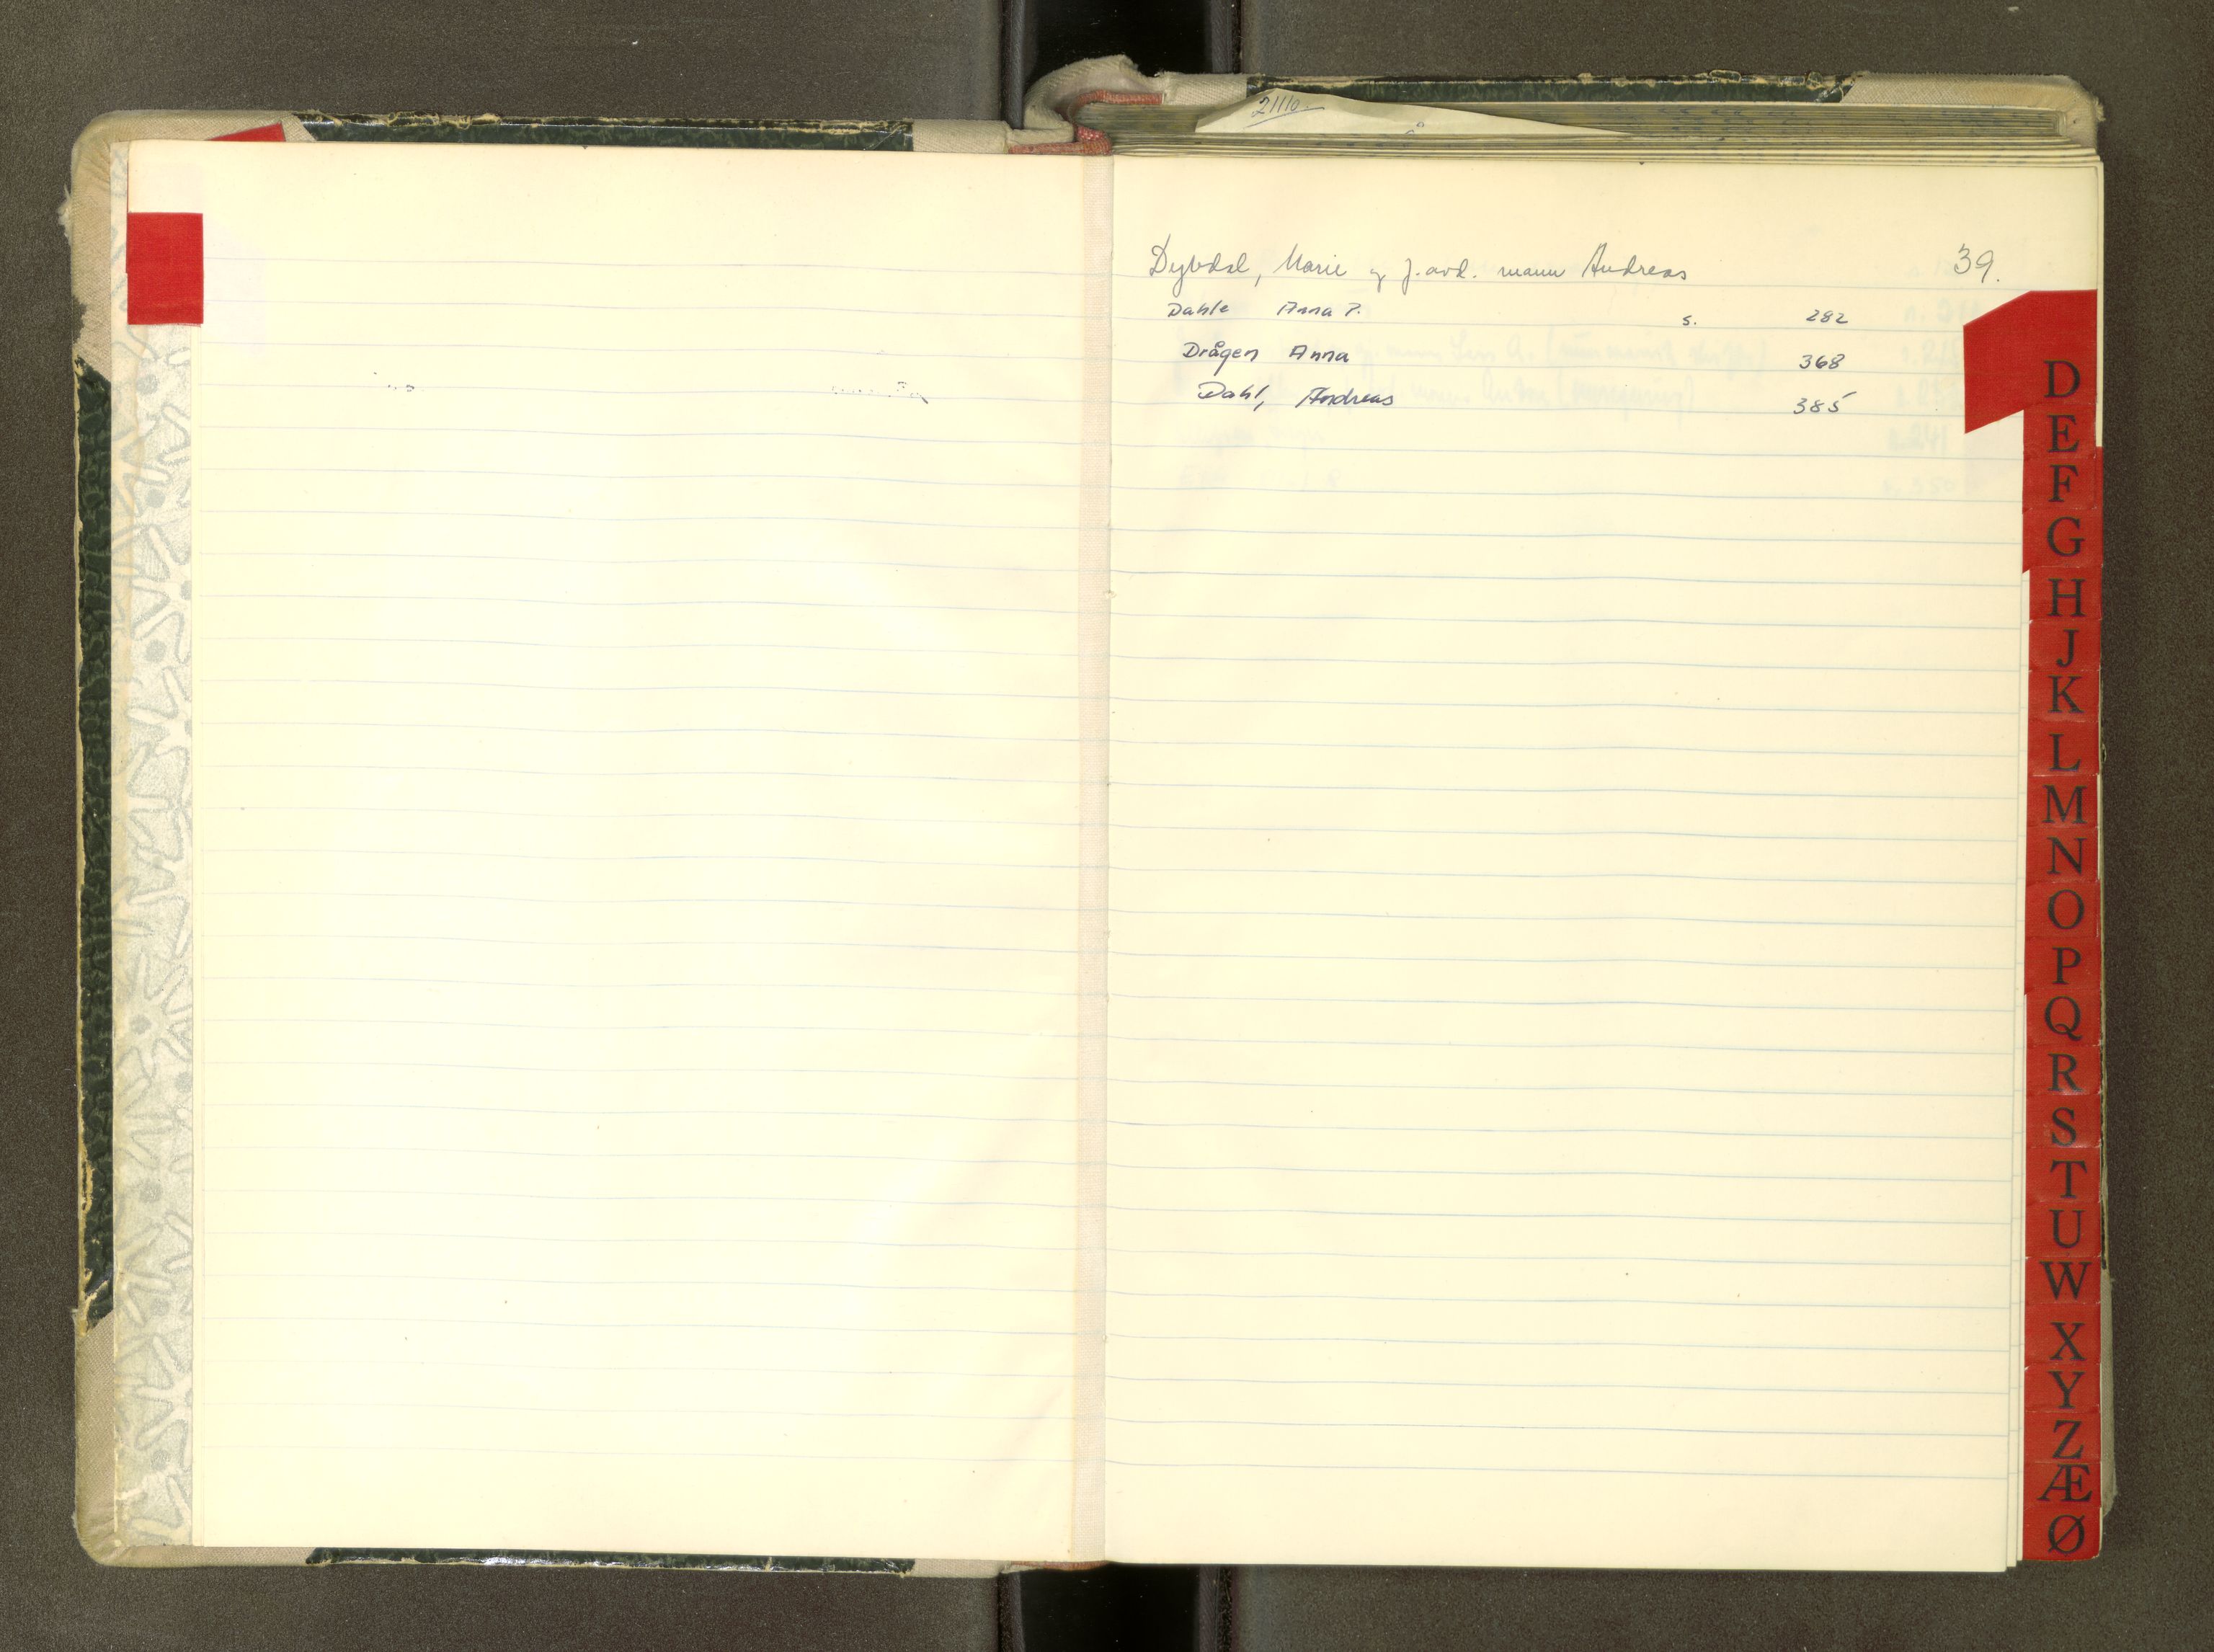 21110.-
Dybdal, Marie og f. avd. mann Andreas 39.
Dahle Anna P. s. 282
Drågen Anna 368
Dahl, Andreas 385
D
E
F
G
H
J
K
L
M
N
O
P
Q
R
S
T
U
W
X
Y
Z
Æ
Ø